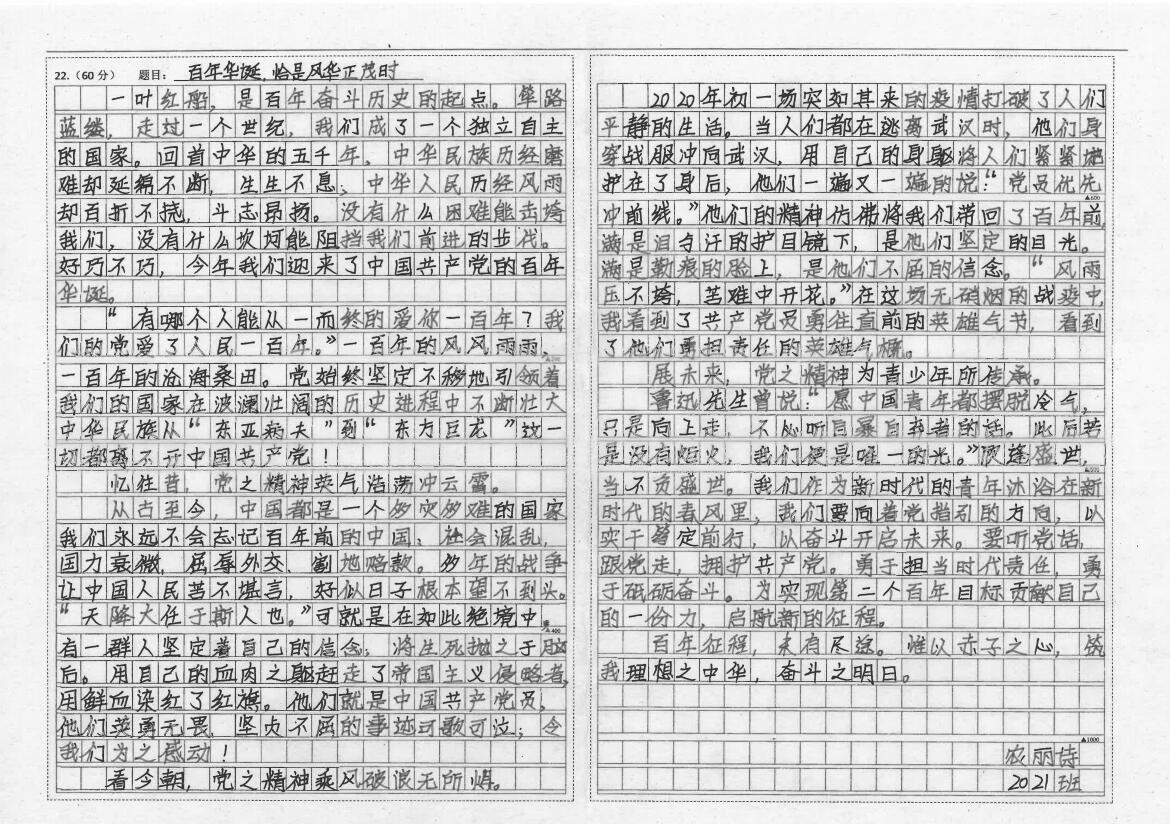 22.（60分） 题目： 百年华诞，恰是风华正茂时
一叶红船，是百年奋斗历史的起点。筚路
蓝缕，走过一个世纪，我们成了一个独立自主
的国家。回首中华的五千年，中华民族历经磨
难却延绵不断，生生不息；中华人民历经风雨
却百折不挠，斗志昂扬。没有什么困难能击垮
我们，没有什么坎坷能阻挡我们前进的步伐。
好巧不巧，今年我们迎来了中国共产党的百年
华诞。
“有哪个人能从一而终的爱你一百年？我
们的党爱了人民一百年。”一百年的风风雨雨，
▲200
一百年的沧海桑田。党始终坚定不移地引领着
我们的国家在波澜壮阔的历史进程中不断壮大
中华民族从“东亚病夫”到“东方巨龙”这一
切都离不开中国共产党！
忆往昔，党之精神英气浩荡冲云霄。
从古至今，中国都是一个多灾多难的国家
我们永远不会忘记百年前的中国、社会混乱，
国力衰微，屈辱外交、割地赔款。多年的战争
让中国人民苦不堪言，好似日子根本望不到头。
“天降大任于斯人也。”可就是在如此绝境中，
▲400
有一群人坚定着自己的信念；将生死抛之于脑
后。用自己的血肉之躯赶走了帝国主义侵略者，
用鲜血染红了红旗。他们就是中国共产党员，
他们英勇无畏，坚贞不屈的事迹可歌可泣；令
我们为之感动！
看今朝，党之精神乘风破浪无所惧。
2020年初一场突如其来的疫情打破了人们
平静的生活。当人们都在逃离武汉时，他们身
穿战服冲向武汉，用自己的身躯将人们紧紧地
护在了身后，他们一遍又一遍的说：“党员优先
▲600
冲前线。”他们的精神仿佛将我们带回了百年前，
满是泪与汗的护目镜下，是他们坚定的目光。
满是勒痕的脸上，是他们不屈的信念。“风雨
压不垮，苦难中开花。”在这场无硝烟的战疫中，
我看到了共产党员勇往直前的英雄气节，看到
了他们勇担责任的英雄气概。
展未来，党之精神为青少年所传承。
鲁迅先生曾说：“愿中国青年都摆脱冷气，
只是向上走，不必听自暴自弃者的话。此后若
是没有炬火，我们便是唯一的光。”欣逢盛世，
▲800
当不负盛世。我们作为新时代的青年沐浴在新
时代的春风里，我们要向着党指引的方向，以
实干笃定前行，以奋斗开启未来。要听党话，
跟党走，拥护共产党。勇于担当时代责任，勇
于砥砺奋斗。为实现第二个百年目标贡献自己
的一份力，启航新的征程。
百年征程，未有尽途。惟以赤子之心，筑
我理想之中华，奋斗之明日。
▲1000
农丽诗
2021班